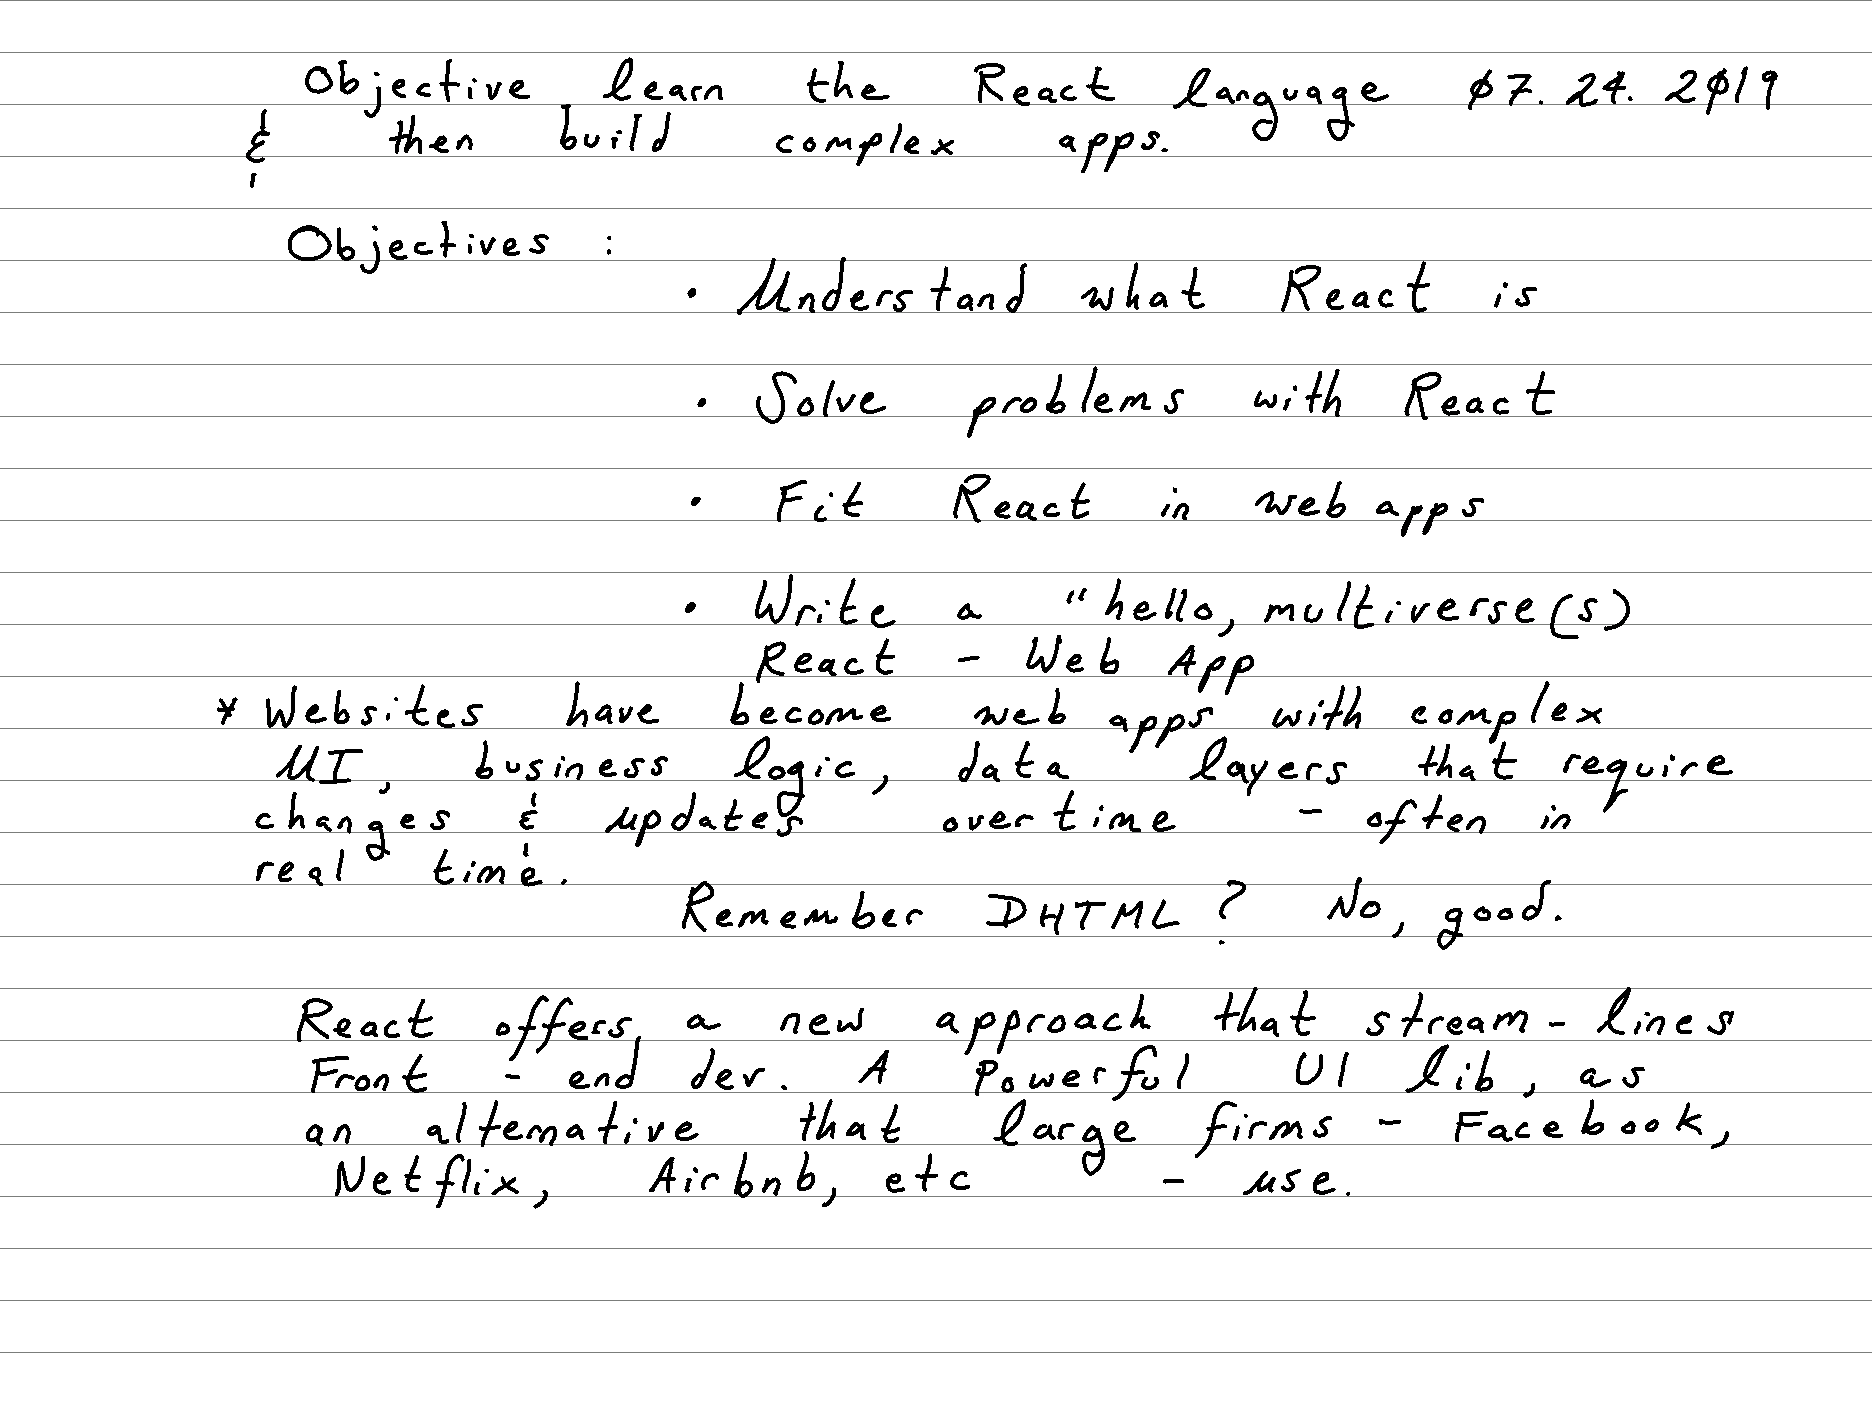 Objective learn the React language 07.24.2019
& then build complex apps.
Objectives :
• Understand what React is
• Solve problems with React
• Fit React in web apps
• Write a "hello, multiverse(s)
React - Web App
* Websites have become web apps with complex
UI, business logic, data layers that require
changes & updates over time - often in
real time.
Remember DHTML? No, good.
React offers a new approach that stream-lines
Front-end dev. A Powerful UI lib, as
an alternative that large firms - Facebook,
Netflix, Airbnb, etc - use.